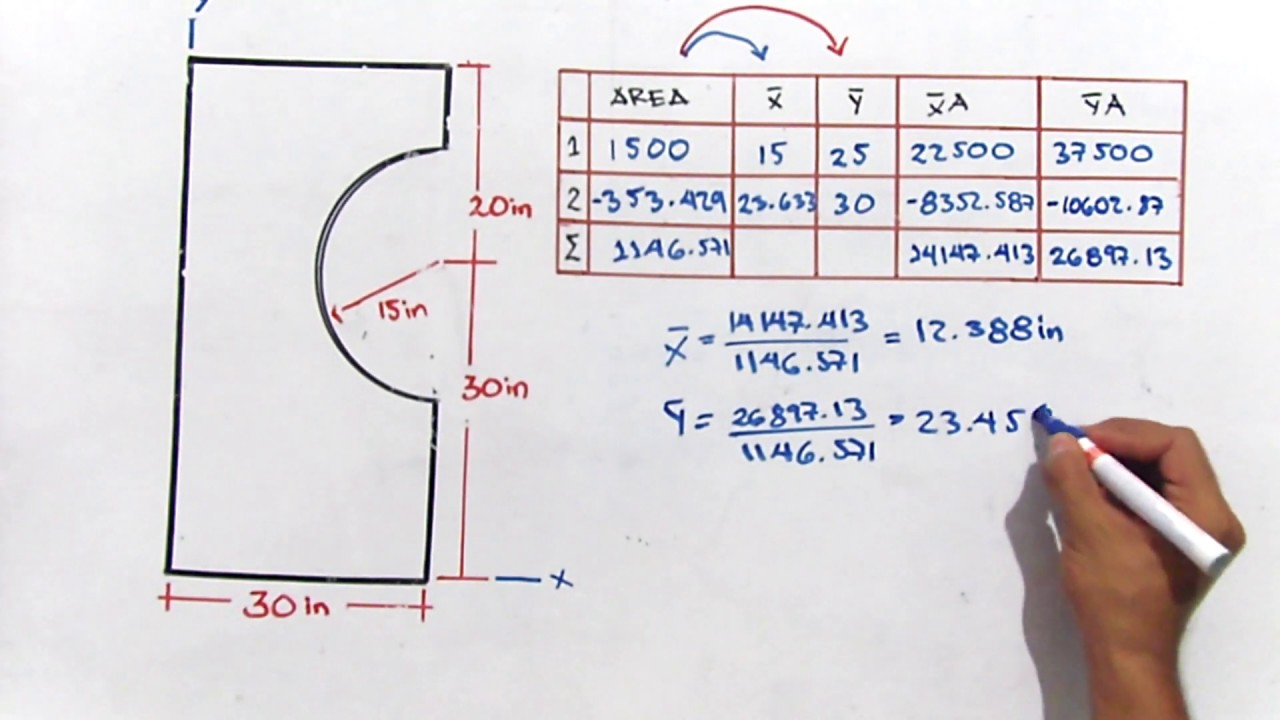 y
20in
15in
30in
x
30in
AREA X̄ Ȳ X̄A ȲA
1 1500 15 25 22500 37500
2 -353.429 23.633 30 -8352.587 -10602.87
Σ 1146.571 14147.413 26897.13
X̄ = 14147.413 / 1146.571 = 12.388in
Ȳ = 26897.13 / 1146.571 = 23.45